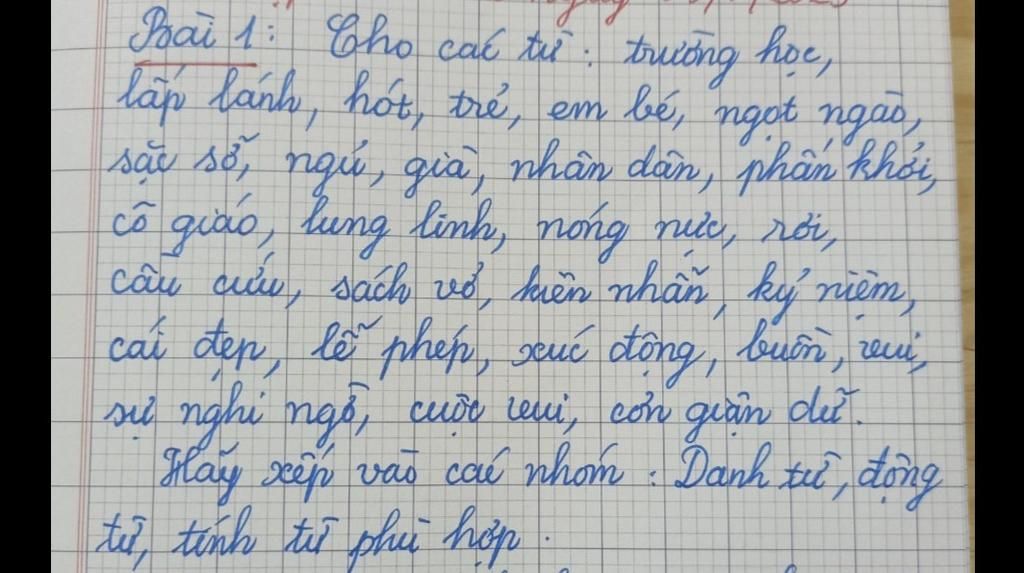 Bài 1: Cho các từ: trường học,
lấp lánh, hót, trẻ, em bé, ngọt ngào,
sặc sỡ, ngủ, già, nhân dân, phấn khởi,
cô giáo, lung linh, nóng nực, rơi,
cầu cứu, sách vở, kiên nhẫn, kỷ niệm,
cái đẹp, lễ phép, xúc động, buồn, vui,
sự nghi ngờ, cuộc vui, cơn giận dữ.
Hãy xếp vào các nhóm: Danh từ, động
từ, tính từ phù hợp.